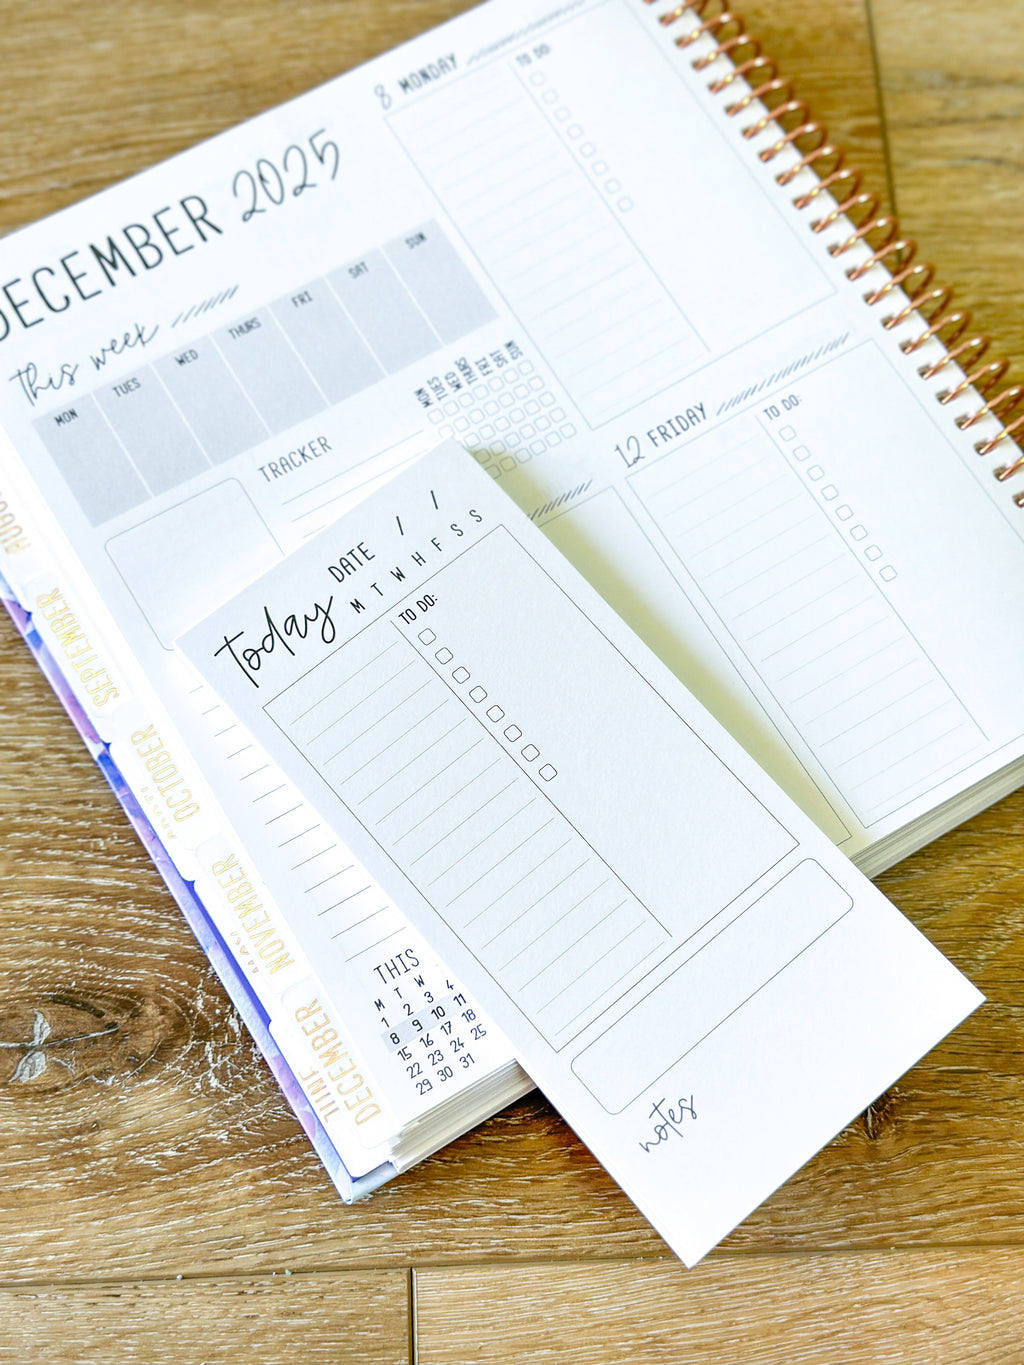 DECEMBER 2025
this week
MON TUES WED THURS FRI SAT SUN
TRACKER
MON TUES WED THURS FRI SAT SUN
8 MONDAY
TO DO:
12 FRIDAY
TO DO:
Today
DATE / /
M T W H F S S
TO DO:
notes
THIS
M T W
1 2 3 4
8 9 10 11
15 16 17 18
22 23 24 25
29 30 31
SEPTEMBER
OCTOBER
NOVEMBER
DECEMBER
JUNE